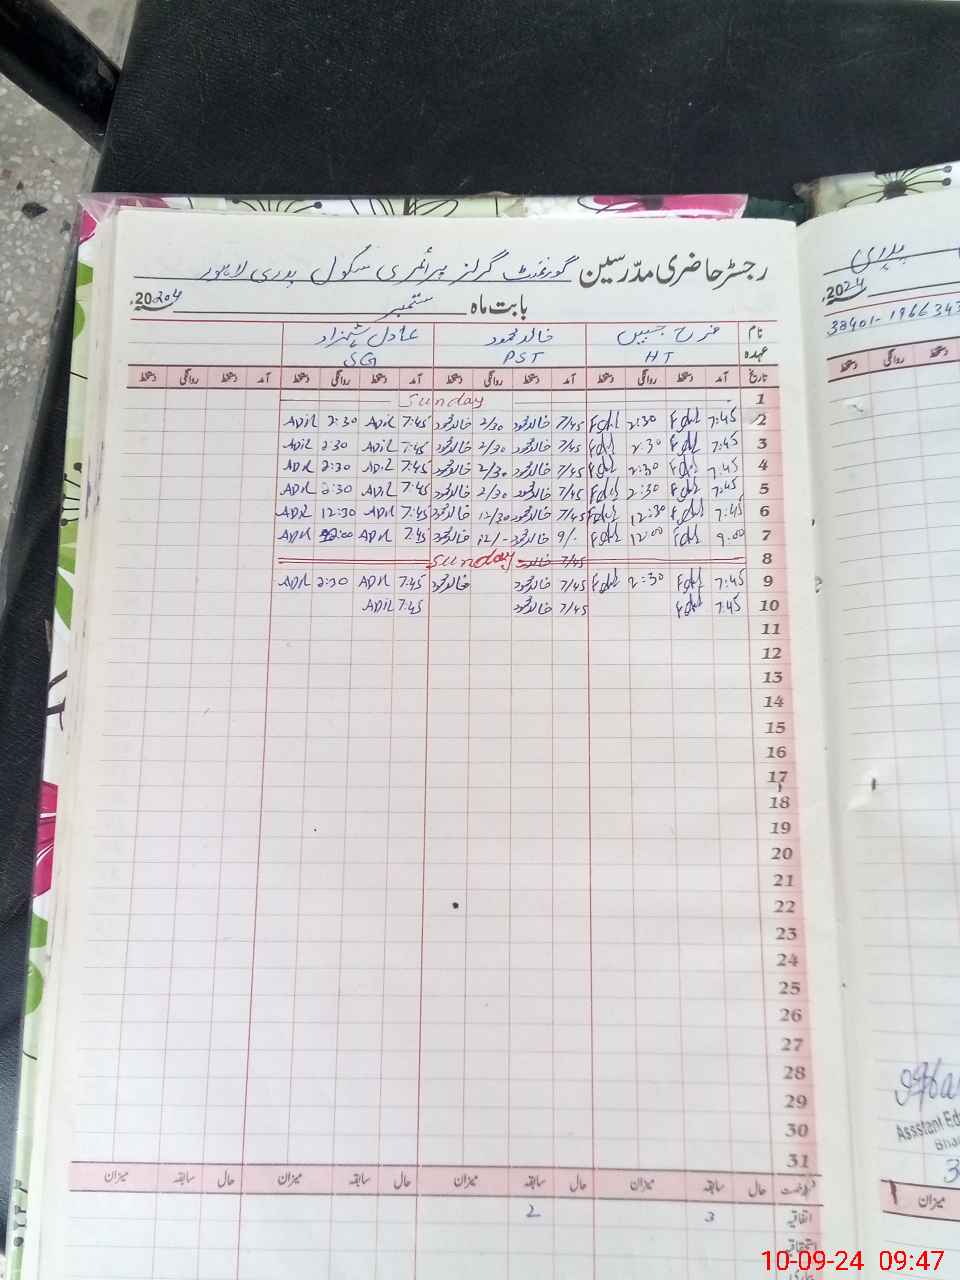 رجسٹر حاضری مدرسین گورنمنٹ گرلز پرائمری سکول
بابت ماہ ستمبر 20204
نام فرح جبیں خالد محمود عادل شہزاد
عہدہ HT PST SG
تاریخ آمد دستخط روانگی دستخط آمد دستخط روانگی دستخط آمد دستخط روانگی دستخط آمد دستخط روانگی دستخط
1 Sunday
2 7:45 2:30 7/45 خالد محمود 2/30 خالد محمود 7:45 ADiL 2:30 ADiL
3 7:45 2:30 7/45 خالد محمود 2/30 خالد محمود 7:45 ADiL 2:30 ADiL
4 7:45 2:30 7/45 خالد محمود 2/30 خالد محمود 7:45 ADiL 2:30 ADiL
5 7:45 2:30 7/45 خالد محمود 2/30 خالد محمود 7:45 ADiL 2:30 ADiL
6 7:45 12:30 7/45 خالد محمود 12/30 خالد محمود 7:45 ADiL 12:30 ADiL
7 9:00 12:00 9/- خالد محمود 12/- خالد محمود 7:45 ADiL ADiL
8 7/45 Sunday
9 7:45 2:30 7/45 خالد محمود خالد محمود 7:45 ADiL 2:30 ADiL
10 7:45 7/45 خالد محمود 7:45 ADiL
11
12
13
14
15
16
17
18
19
20
21
22
23
24
25
26
27
28
29
30
31
حال سابقہ میزان حال سابقہ میزان حال سابقہ میزان حال سابقہ میزان
اتفاقیہ 3 2
استحقاقیہ
2024
38401-1966343
دستخط روانگی دستخط
Assistant Ed
Bha
میزان
10-09-24 09:47